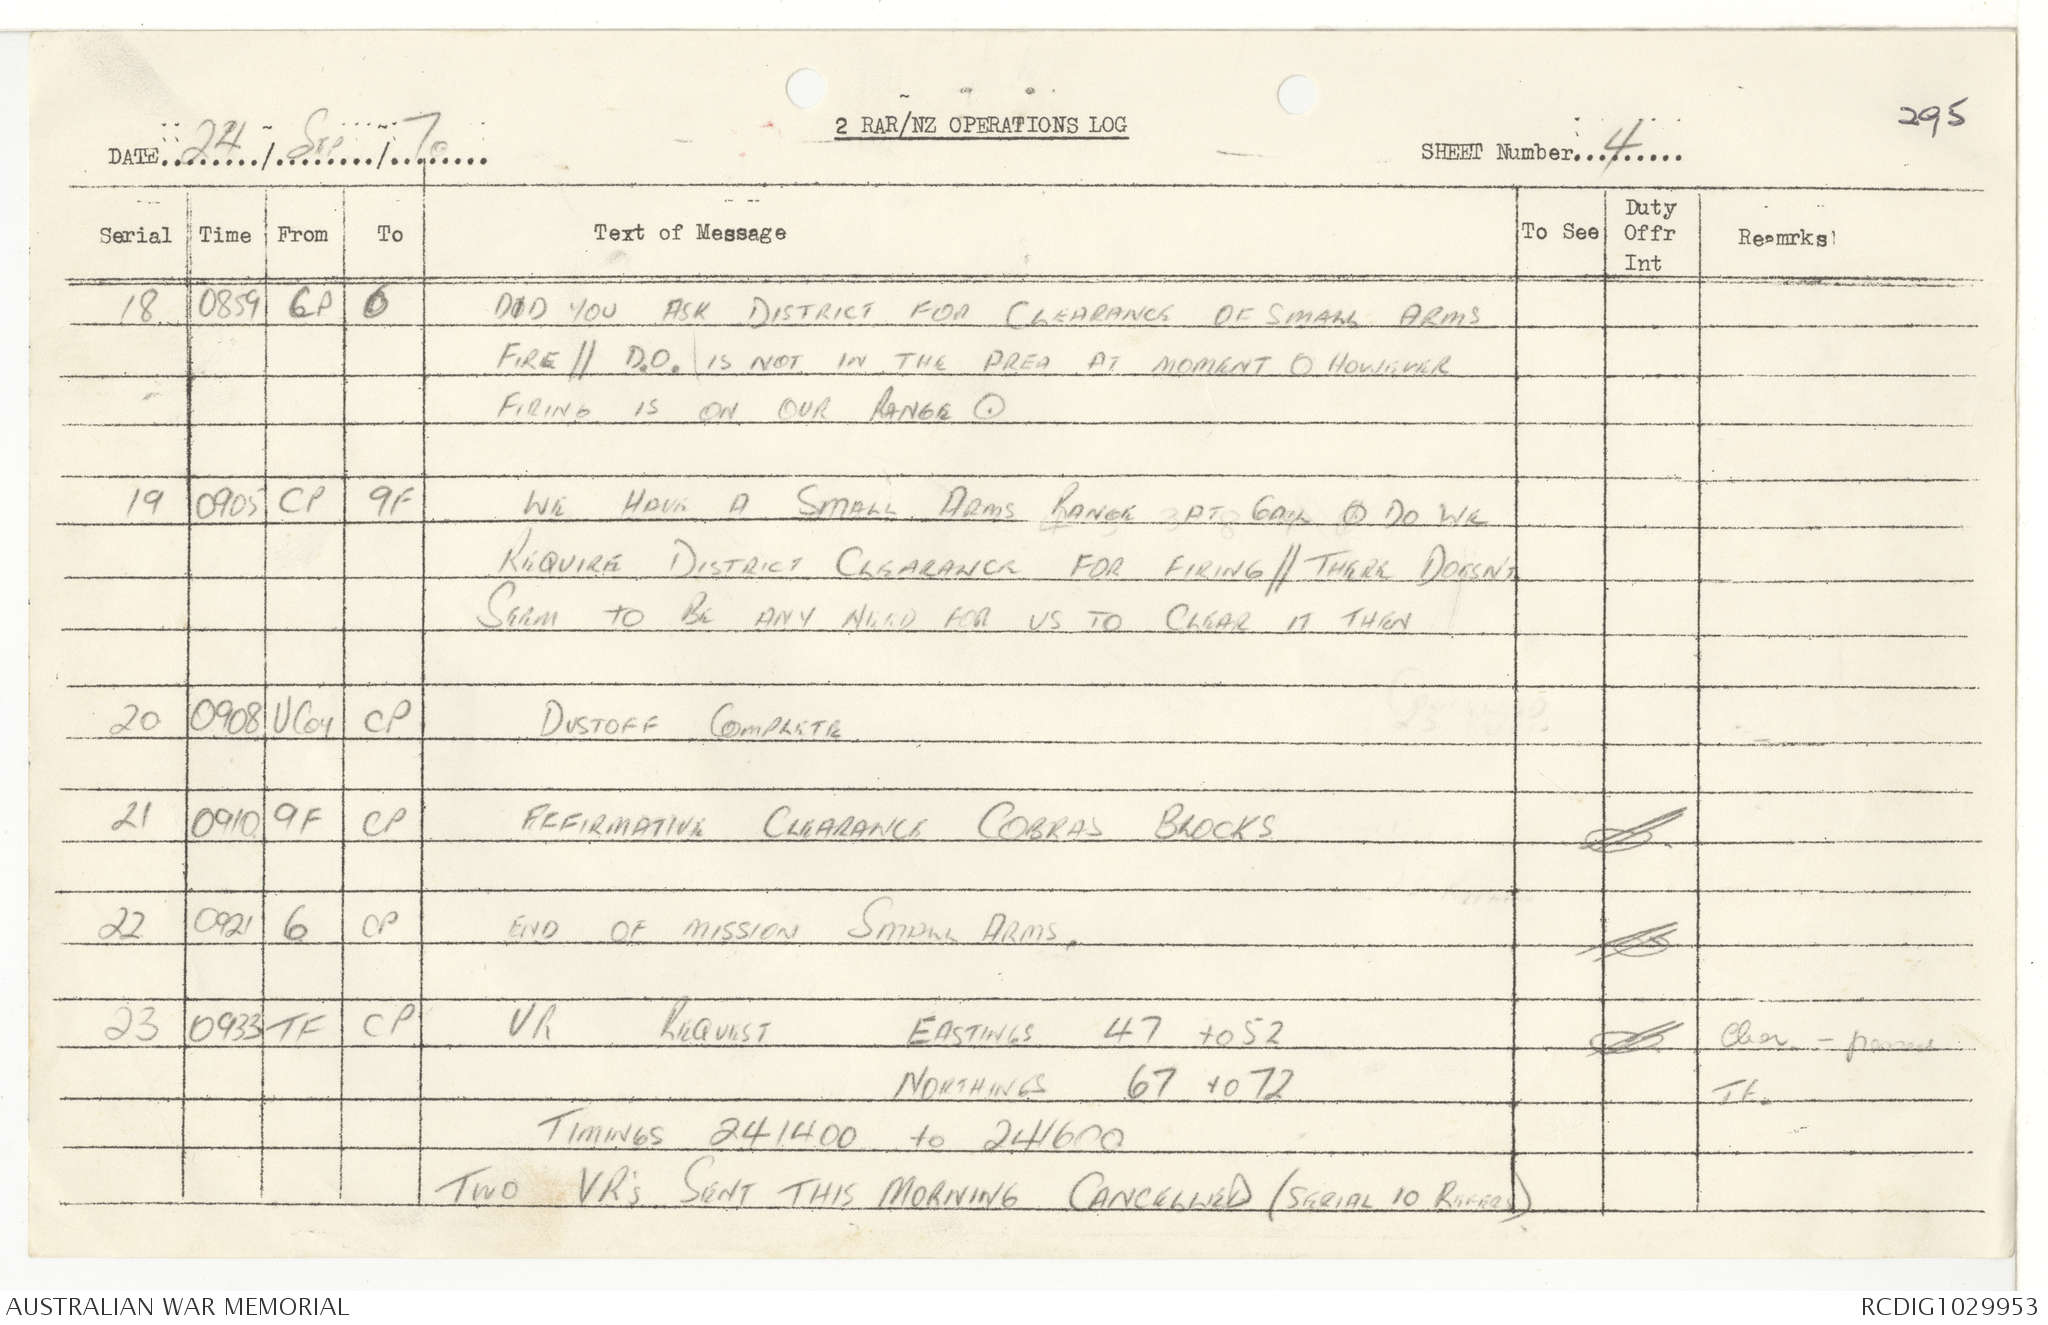 295
2 RAR/NZ OPERATIONS LOG
DATE 24 / Sep / 70
SHEET Number 4
Serial Time From To Text of Message To See Duty Offr Int Reamrks
18 0859 CP 6 DID YOU ASK DISTRICT FOR CLEARANCE OF SMALL ARMS
FIRE // D.O. IS NOT IN THE AREA AT MOMENT O HOWEVER
FIRING IS ON OUR RANGE ⊙
19 0905 CP 9F WE HAVE A SMALL ARMS RANGE AT GAIL ⊙ DO WE
REQUIRE DISTRICT CLEARANCE FOR FIRING // THERE DOESN'T
SEEM TO BE ANY NEED FOR US TO CLEAR IT THEN
20 0908 V Coy CP DUSTOFF COMPLETE
21 0910 9F CP AFFIRMATIVE CLEARANCE COBRAS BLOCKS
22 0921 6 CP END OF MISSION SMALL ARMS.
23 0933 TF CP VR REQUEST EASTINGS 47 to 52
NORTHINGS 67 to 72 TF.
TIMINGS 241400 to 241600
TWO VR's SENT THIS MORNING CANCELLED (SERIAL 10 REFERS)
AUSTRALIAN WAR MEMORIAL
RCDIG1029953